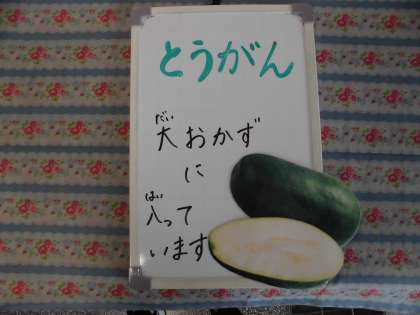 とうがん
だい
大おかず
に
はい
入って
います